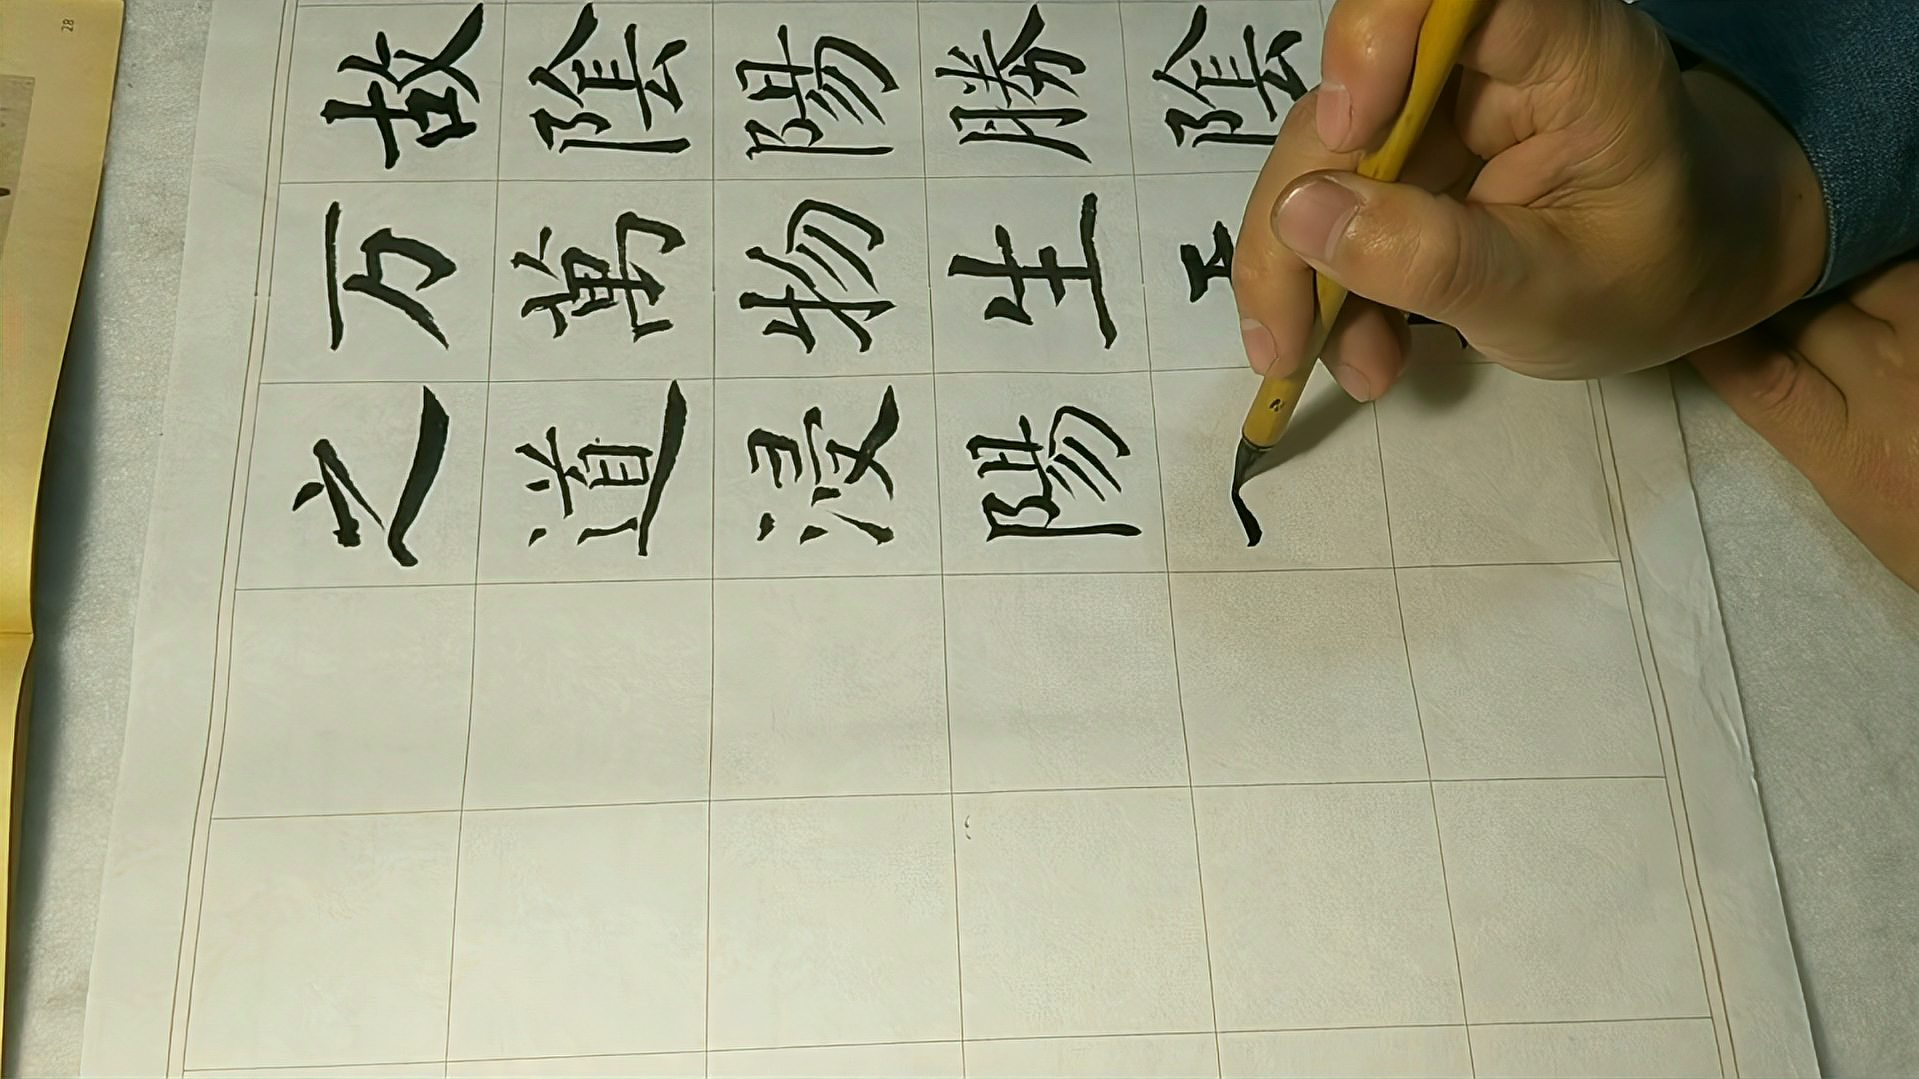 故陰陽勝陰
万萬物生
之道浸陽